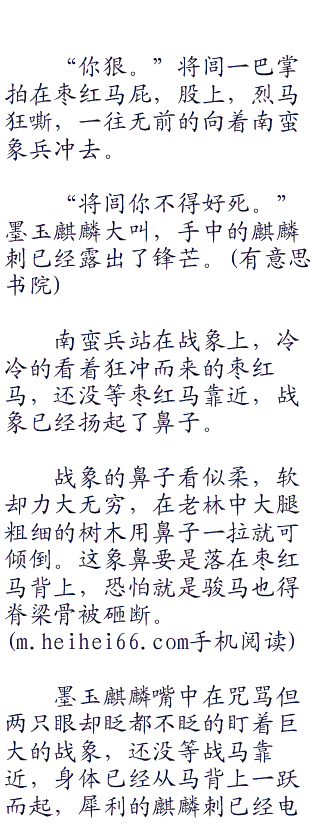 “你狠。”将闾一巴掌
拍在枣红马屁，股上，烈马
狂嘶，一往无前的向着南蛮
象兵冲去。
“将闾你不得好死。”
墨玉麒麟大叫，手中的麒麟
刺已经露出了锋芒。(有意思
书院)
南蛮兵站在战象上，冷
冷的看着狂冲而来的枣红
马，还没等枣红马靠近，战
象已经扬起了鼻子。
战象的鼻子看似柔，软
却力大无穷，在老林中大腿
粗细的树木用鼻子一拉就可
倾倒。这象鼻要是落在枣红
马背上，恐怕就是骏马也得
脊梁骨被砸断。
(m.heihei66.com手机阅读)
墨玉麒麟嘴中在咒骂但
两只眼却眨都不眨的盯着巨
大的战象，还没等战马靠
近，身体已经从马背上一跃
而起，犀利的麒麟刺已经电